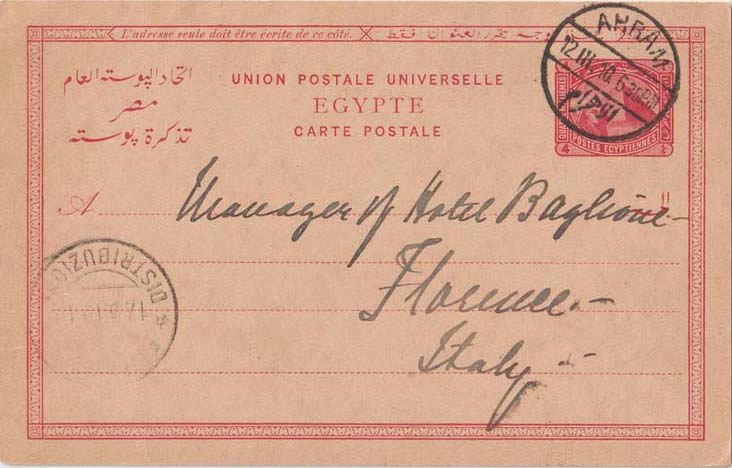 L'adresse seule doit être écrite de ce côté.
AHRAM
12 III 10 6
الاهرام
اتحاد البوسته العام
مصر
تذكرة بوسته
UNION POSTALE UNIVERSELLE
EGYPTE
CARTE POSTALE
POSTES EGYPTIENNES
4
A Manager of Hotel Baglioni
Florence.
Italy
DISTRIBUZIO